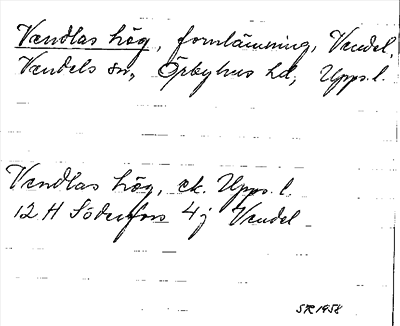 Vendlas hög, fornlämning, Vendel,
Vendels sn, Örbyhus hd, Upps. l.
Vendlas hög, ek. Upps. l.
12 H Söderfors 4j Vendel
SR 1958